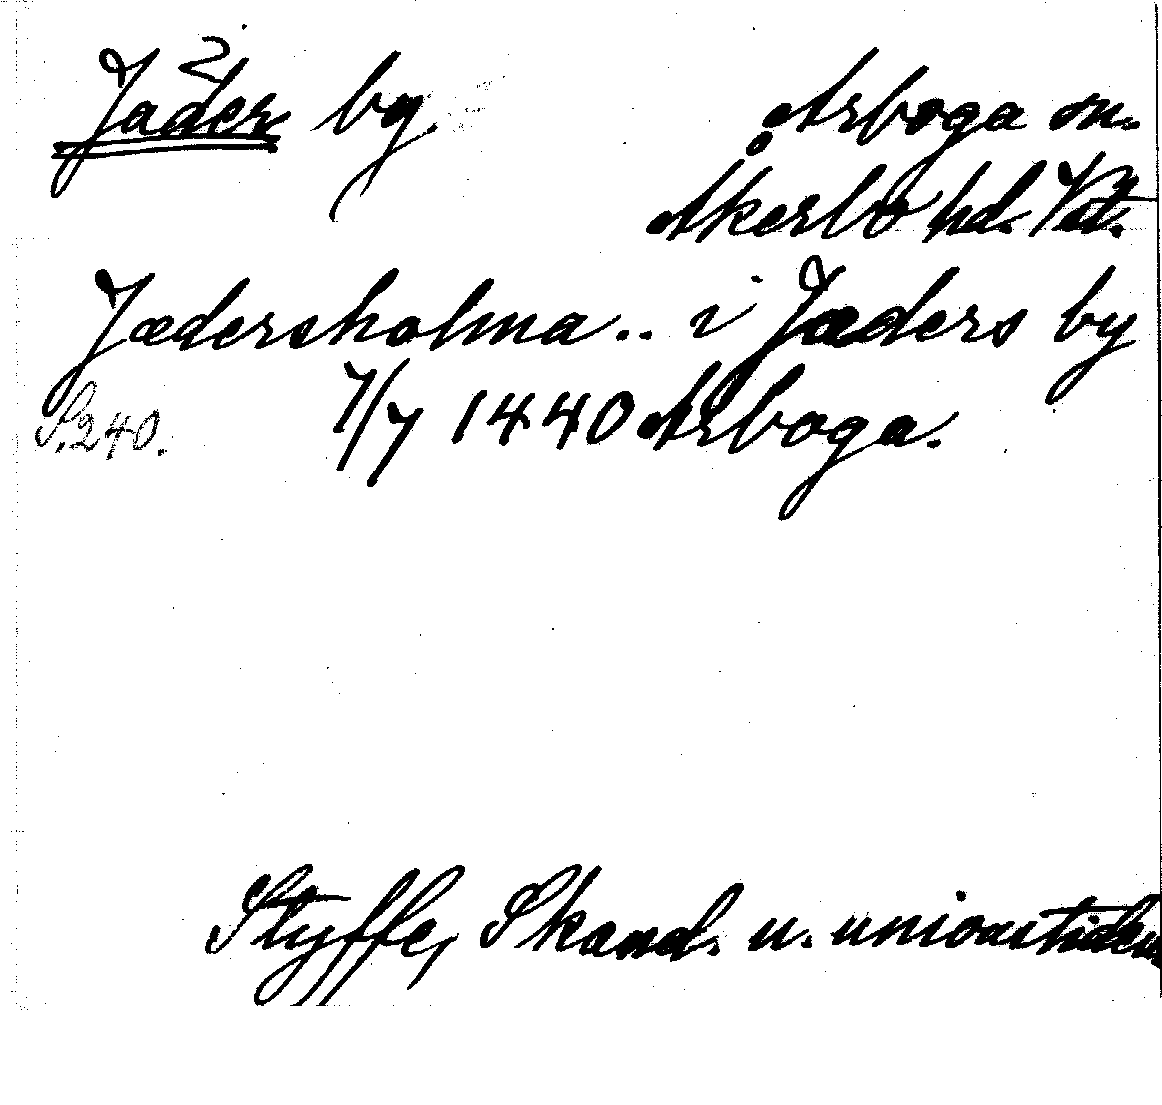 Jäder by Arboga sn.
Åkerbo hd. Vstl.
Jædersholma .. i Jæders by
S. 240. 7/7 1440 Arboga.
Styffe, Skand. u. unionstiden